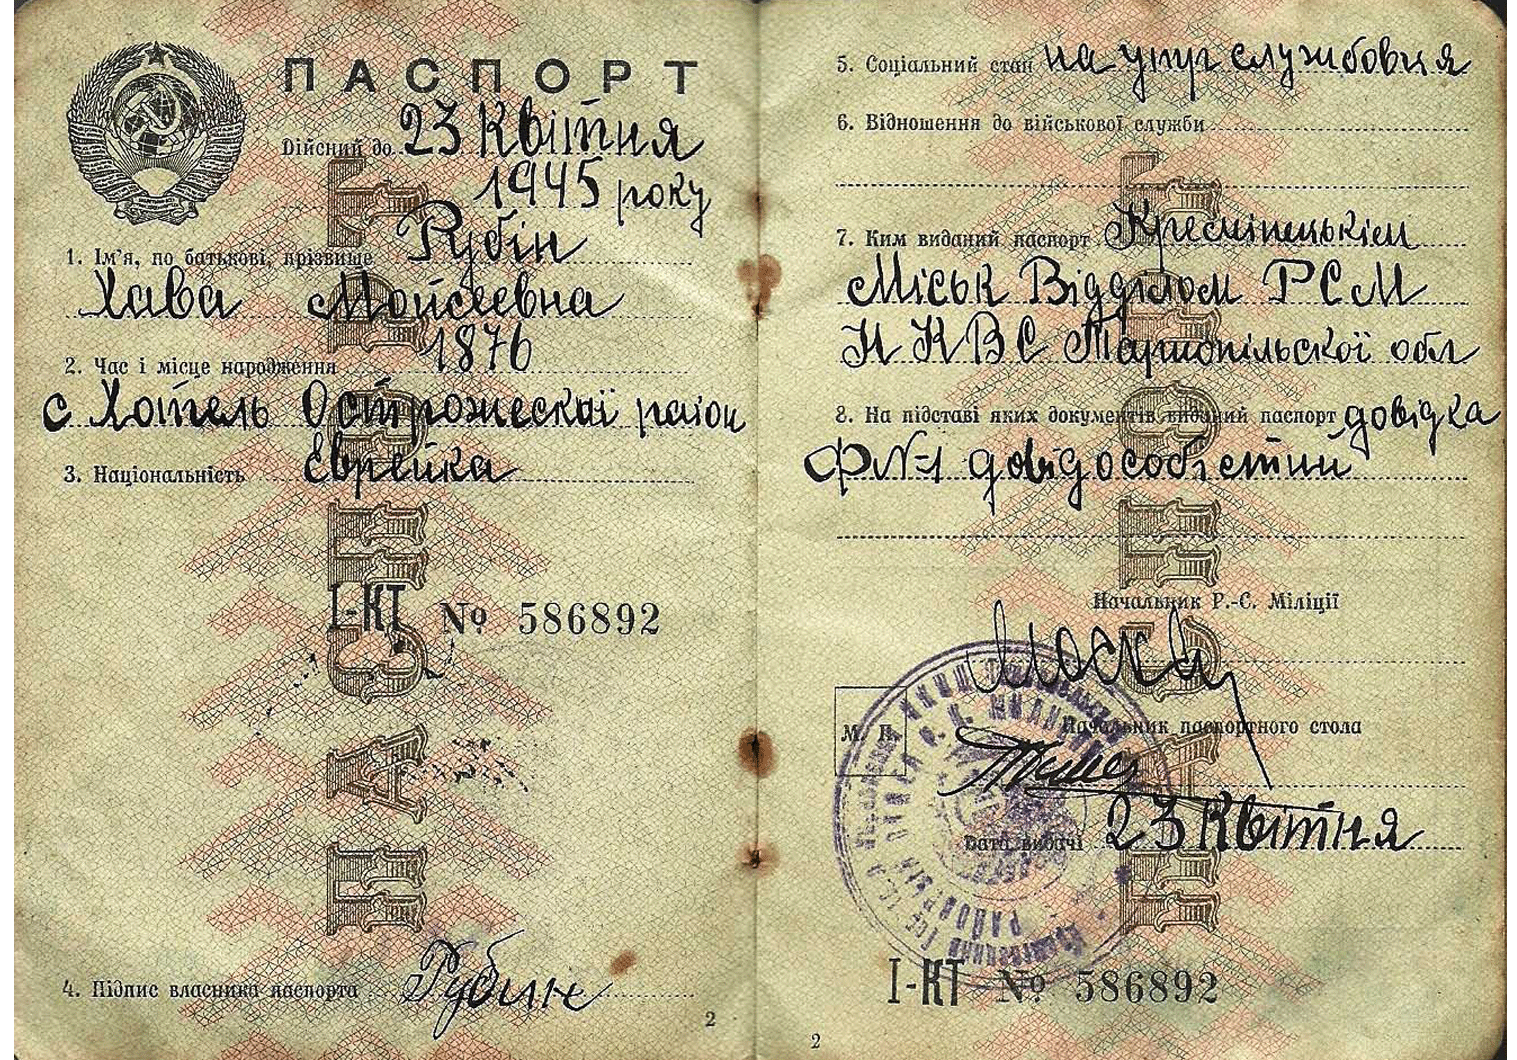 ПАСПОРТ
Дійсний до 23 Квітня
1945 року
1. Ім'я, по батькові, прізвище Рубін
Хава Мойсеевна
2. Час і місце народження 1876
с Хотель Острожескої район
3. Національність Еврейка
I-КТ № 586892
4. Підпис власника паспорта Рубин
2
5. Соціальний стан на утр службовця
6. Відношення до військової служби
7. Ким виданий паспорт Кремінецькім
Міськ Відділом РСМ
НКВС Тарнопільскої обл
8. На підставі яких документів виданий паспорт довідка
Ф№1
Начальник Р.-С. Міліції
М. П.
Начальник паспортного стола
Дата видачі 23 Квітня
I-КТ № 586892
2
ПАСПОРТ
ПАСПОРТ